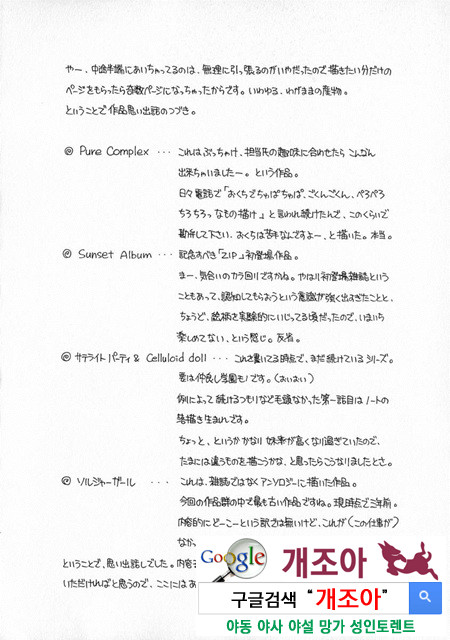 やー、中途半端にあいちゃってるのは、無理に引っ張るのがいやだったので描きたい分だけの
ページをもらったら奇数ページになっちゃったからです。いわゆる、わがままの産物。
ということで作品思い出話のつづき。
◎ Pure Complex ・・・ これはぶっちゃけ、担当氏の趣味に合わせたら こんなん
出来ちゃいましたー。という作品。
日々電話で「おくちでちゅぱちゅぱ、ごくんごくん、ぺろぺろ
ちろちろっ なもの描け」と 言われ続けたんで、このくらいで
勘弁して下さい。おくちは苦手なんですよー、と描いた。本当。
◎ Sunset Album ・・・ 記念すべき「ZIP」初登場作品。
まー、気合いのカラ回りですかね。やはり初登場雑誌という
こともあって、認知してもらおうという意識が強く出すぎたことと、
ちょうど、絵柄を実験的にいじってる頃だったので、いまいち
楽しめてない、という感じ。反省。
◎ サテライトパーティ & Celluloid doll ・・・ これを書いてる時点で、まだ続けているシリーズ。
要は仲良し学園モノです。(おいおい)
例によって 続けるつもりなど毛頭なかった第一話目はノートの
落描き生まれです。
ちょっと、というか かなり 妹率が高くなり過ぎていたので、
たまには違うものを描こうかな、と思ったらこうなりましたとさ。
◎ ソルジャーガール ・・・ これは、雑誌ではなくアンソロジーに描いた作品。
今回の作品群の中で最も古い作品ですね。現時点で三年前。
内容的にどーこーという訳では無いけど、これが(この仕事が)
なか
ということで、思い出話でした。内容
いただければと思うので、ここにはあ
Google 개조아
구글검색 “개조아”
야동 야사 야설 망가 성인토렌트